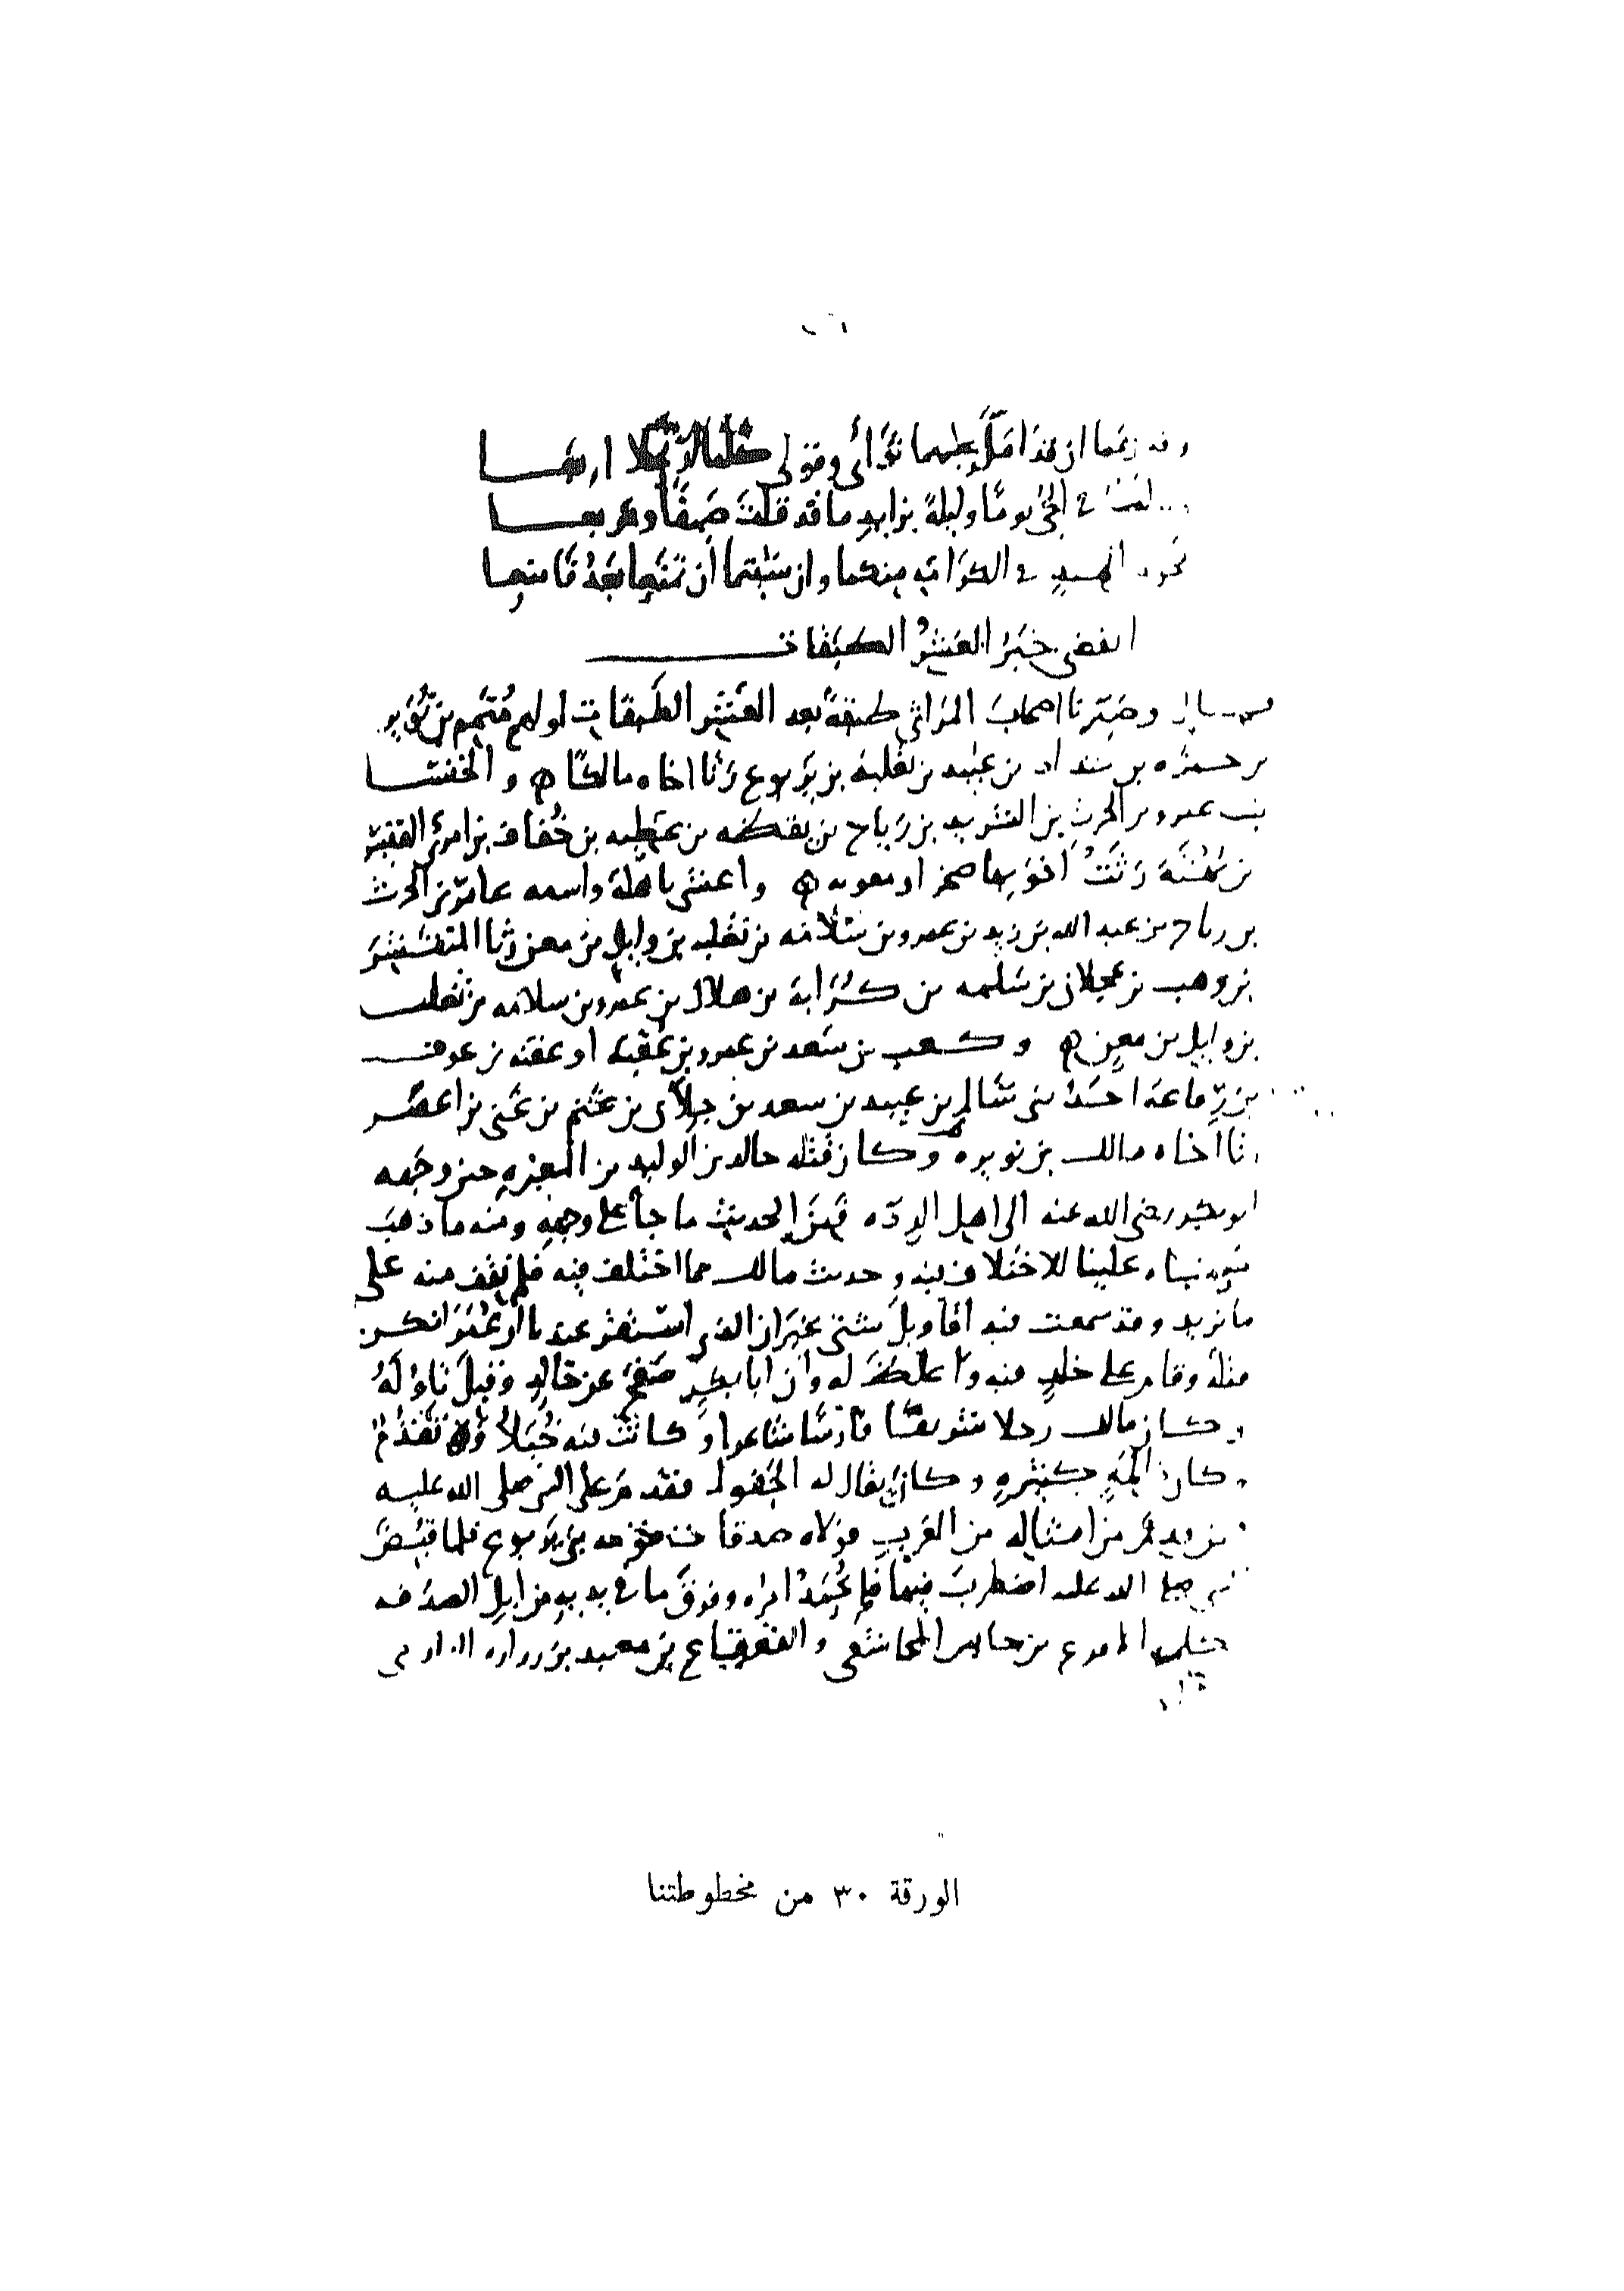 وقد زعما ان قد امل عليهما ثوائى وقولى كلما
لبثت فى الحى يوما وليلة بزايد ما قد قلت صيفا ومربعا
فى الكرامه منكما وان شئتما ان تمنعا بعد فامنعا
انقضى خبر العشر الطبقات
وصيرنا اصحاب المراثى طبقة بعد العشر الطبقات اولهم متمم بن نويره
بن جمره بن شداد بن عبيد بن ثعلبة بن يربوع رثا اخاه مالكا ه والخنسا
بنت عمرو بن الحرث بن الشريد بن رياح بن يقظه بن عصيه بن خفاف بن امرئ القيس
بن بهثة رثت اخويها صخرا ومعويه ه واعشى باهلة واسمه عامر بن الحرث
بن رياح بن عبد الله بن زيد بن عمرو بن سلامه بن ثعلبه بن وايل بن معن رثا المنتشر
بن وهب بن عجلان بن سلمه بن كراثة بن هلال بن عمرو بن سلامه بن ثعلبه
بن وايل بن معن ه وكعب بن سعد بن عمرو بن عقبه او علقمه بن عوف
بن رفاعة احد بنى سالم بن عبيد بن سعد بن جلان بن غنم بن غنى بن اعصر
رثا اخاه مالك بن نويره وكان قتله خالد بن الوليد بن المغيره حين وجهه
ابو بكر رضى الله عنه الى اهل الرده فمن الحديث ما جا على وجهه ومنه ما ذهب
معناه علينا للاختلاف فيه وحديث مالك مما اختلف فيه فلم نقف منه على
ما نريد وقد سمعت فيه اقاويل شتى غير ان الذى استقر عندنا ان عمر انكر
قتله وقام على خلد فيه واغلظ له وان ابا بكر صفح عن خالد وقبل تاوله
وكان مالك رجلا شريفا فارسا شاعرا وكانت فيه خيلا وتقدم
وكان ذا لمة كبيره وكان يقال له الجفول فقدم على النبى صلى الله عليه
فيمن قدم من امثاله من العرب فولاه صدقات قومه بنى يربوع فلما قبض
النبى صلى الله عليه اضطرب فيها فلم يحمد امره وفرق ما فى يديه من ابل الصدقه
فكلمه الاقرع بن حابس المجاشعى والقعقاع بن معبد بن زراره الدارمى
الورقة ٣٠ من مخطوطتنا